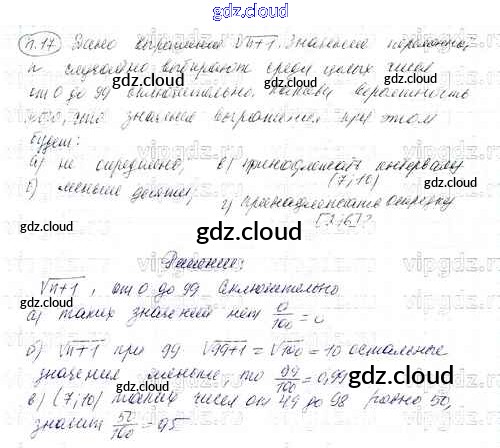 п.17 Дано выражение √n+1. Значение переменной
n случайно выбирают среди целых чисел
от 0 до 99 включительно. Какова вероятность
того, что значение выражения при этом
будет:
а) не определено; в) принадлежать интервалу
(7;10)
б) меньше десяти; г) принадлежать отрезку
gdz.cloud
Решение:
√n+1, от 0 до 99 включительно
а) таких значений нет 0/100 = 0
б) √n+1 при 99 √99+1 = √100 = 10 остальные
значения меньше, то 99/100 = 0,99
в) (7;10) таких чисел от 49 до 98 равно 50,
значит 50/100 = 0,5